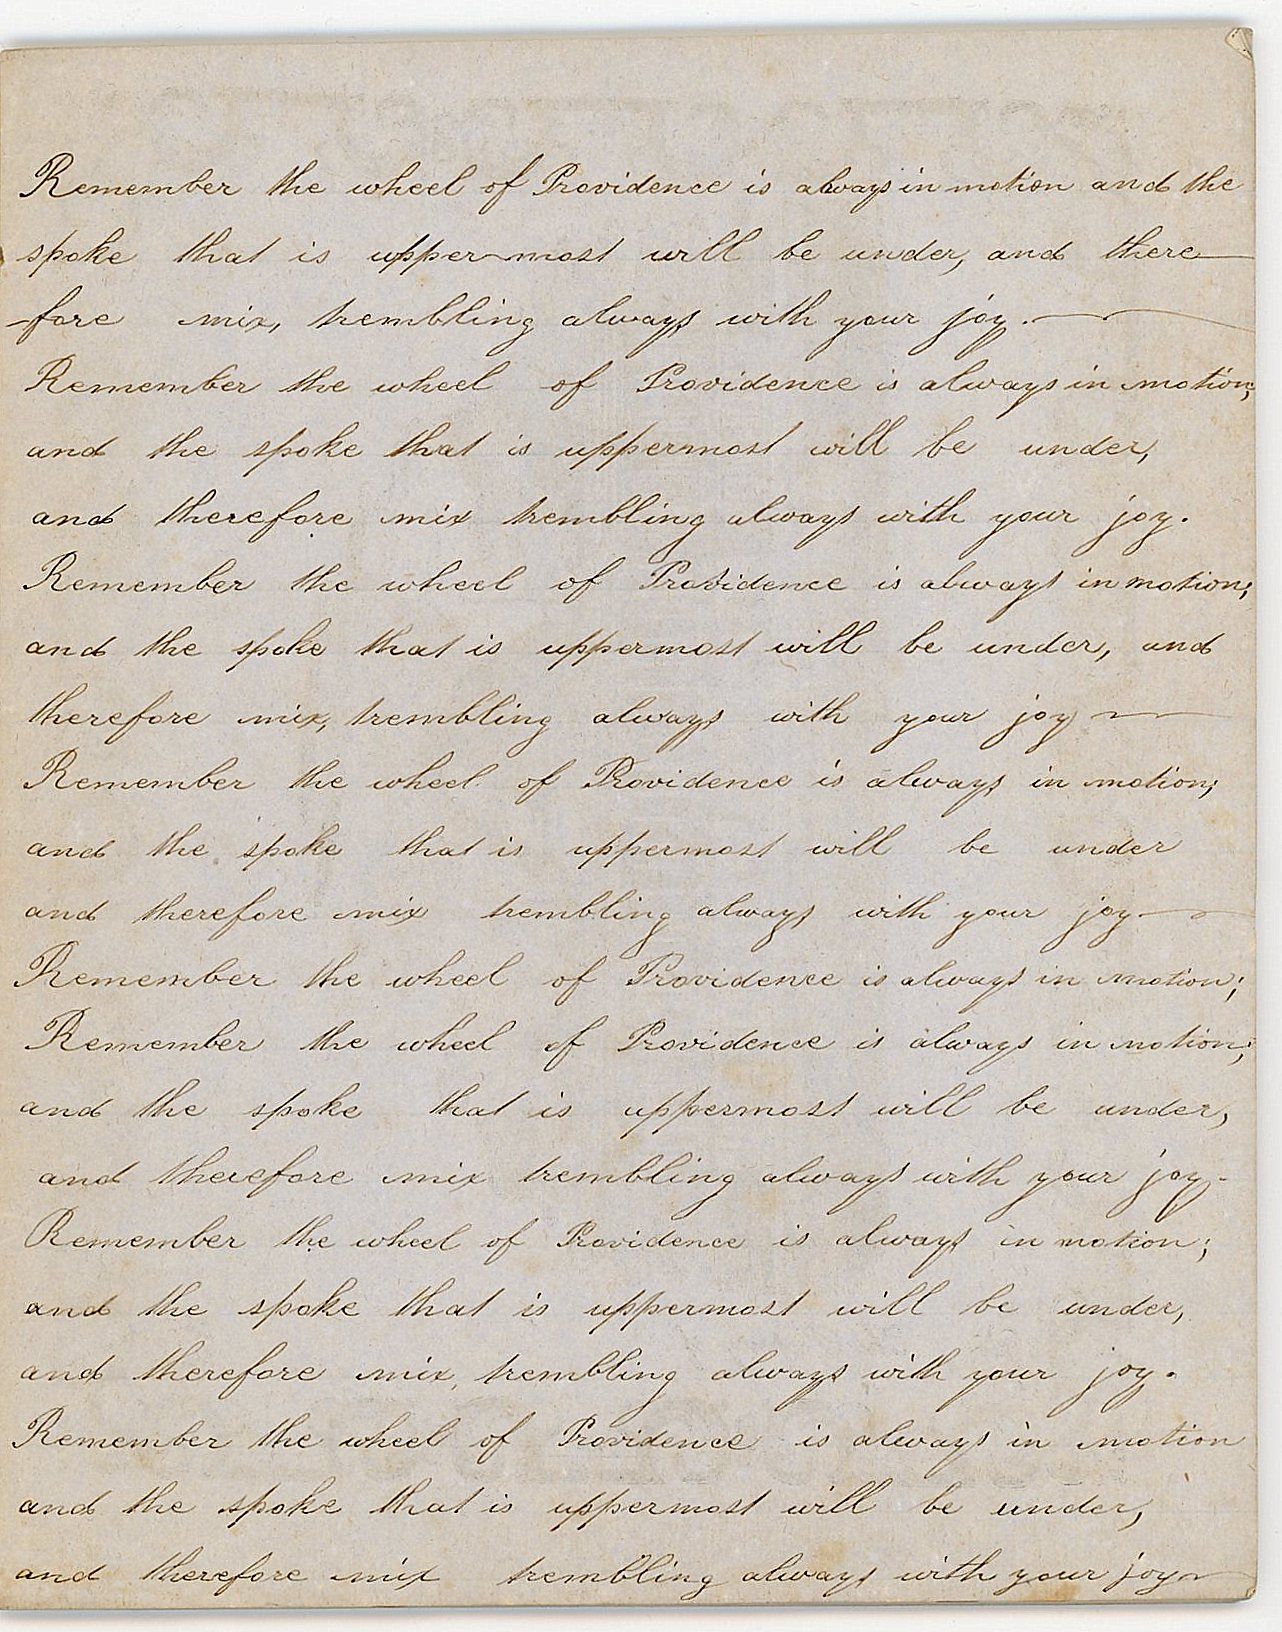 Remember the wheel of Providence is always in motion and the
spoke that is uppermost will be under, and there
-fore mix, trembling always with your joy.
Remember the wheel of Providence is always in motion;
and the spoke that is uppermost will be under,
and therefore mix trembling always with your joy.
Remember the wheel of Providence is always in motion;
and the spoke that is uppermost will be under, and
therefore mix, trembling always with your joy
Remember the wheel of Providence is always in motion;
and the spoke that is uppermost will be under
and therefore mix trembling always with your joy
Remember the wheel of Providence is always in motion;
Remember the wheel of Providence is always in motion;
and the spoke that is uppermost will be under,
and therefore mix trembling always with your joy.
Remember the wheel of Providence is always in motion;
and the spoke that is uppermost will be under,
and therefore mix, trembling always with your joy.
Remember the wheel of Providence is always in motion
and the spoke that is uppermost will be under,
and therefore mix trembling always with your joy